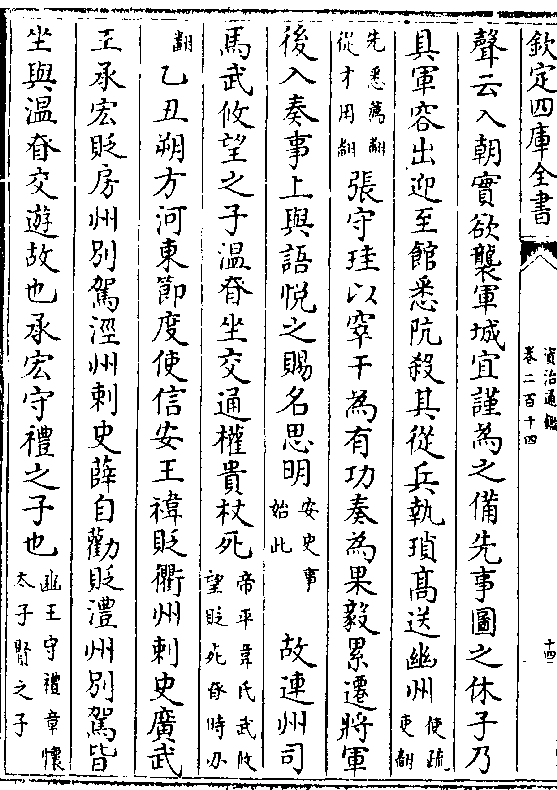 欽定四庫全書
資治通鑑
卷二百十四
十四
聲云入朝實欲襲軍城宜謹為之備先事圖之休子乃
具軍容出迎至館悉阬殺其從兵執瑣高送幽州
使疏
吏翻
先悉薦翻
從才用翻
張守珪以窣干為有功奏為果毅累遷將軍
後入奏事上與語悦之賜名思明
安史事
始此
故連州司
馬武攸望之子温眘坐交通權貴杖死
帝平韋氏武攸
望貶死眘時刃
翻
乙丑朔方河東節度使信安王禕貶衢州刺史廣武
王承宏貶房州别駕涇州刺史薛自勸貶澧州别駕皆
坐與温眘交遊故也承宏守禮之子也
豳王守禮章懷
太子賢之子